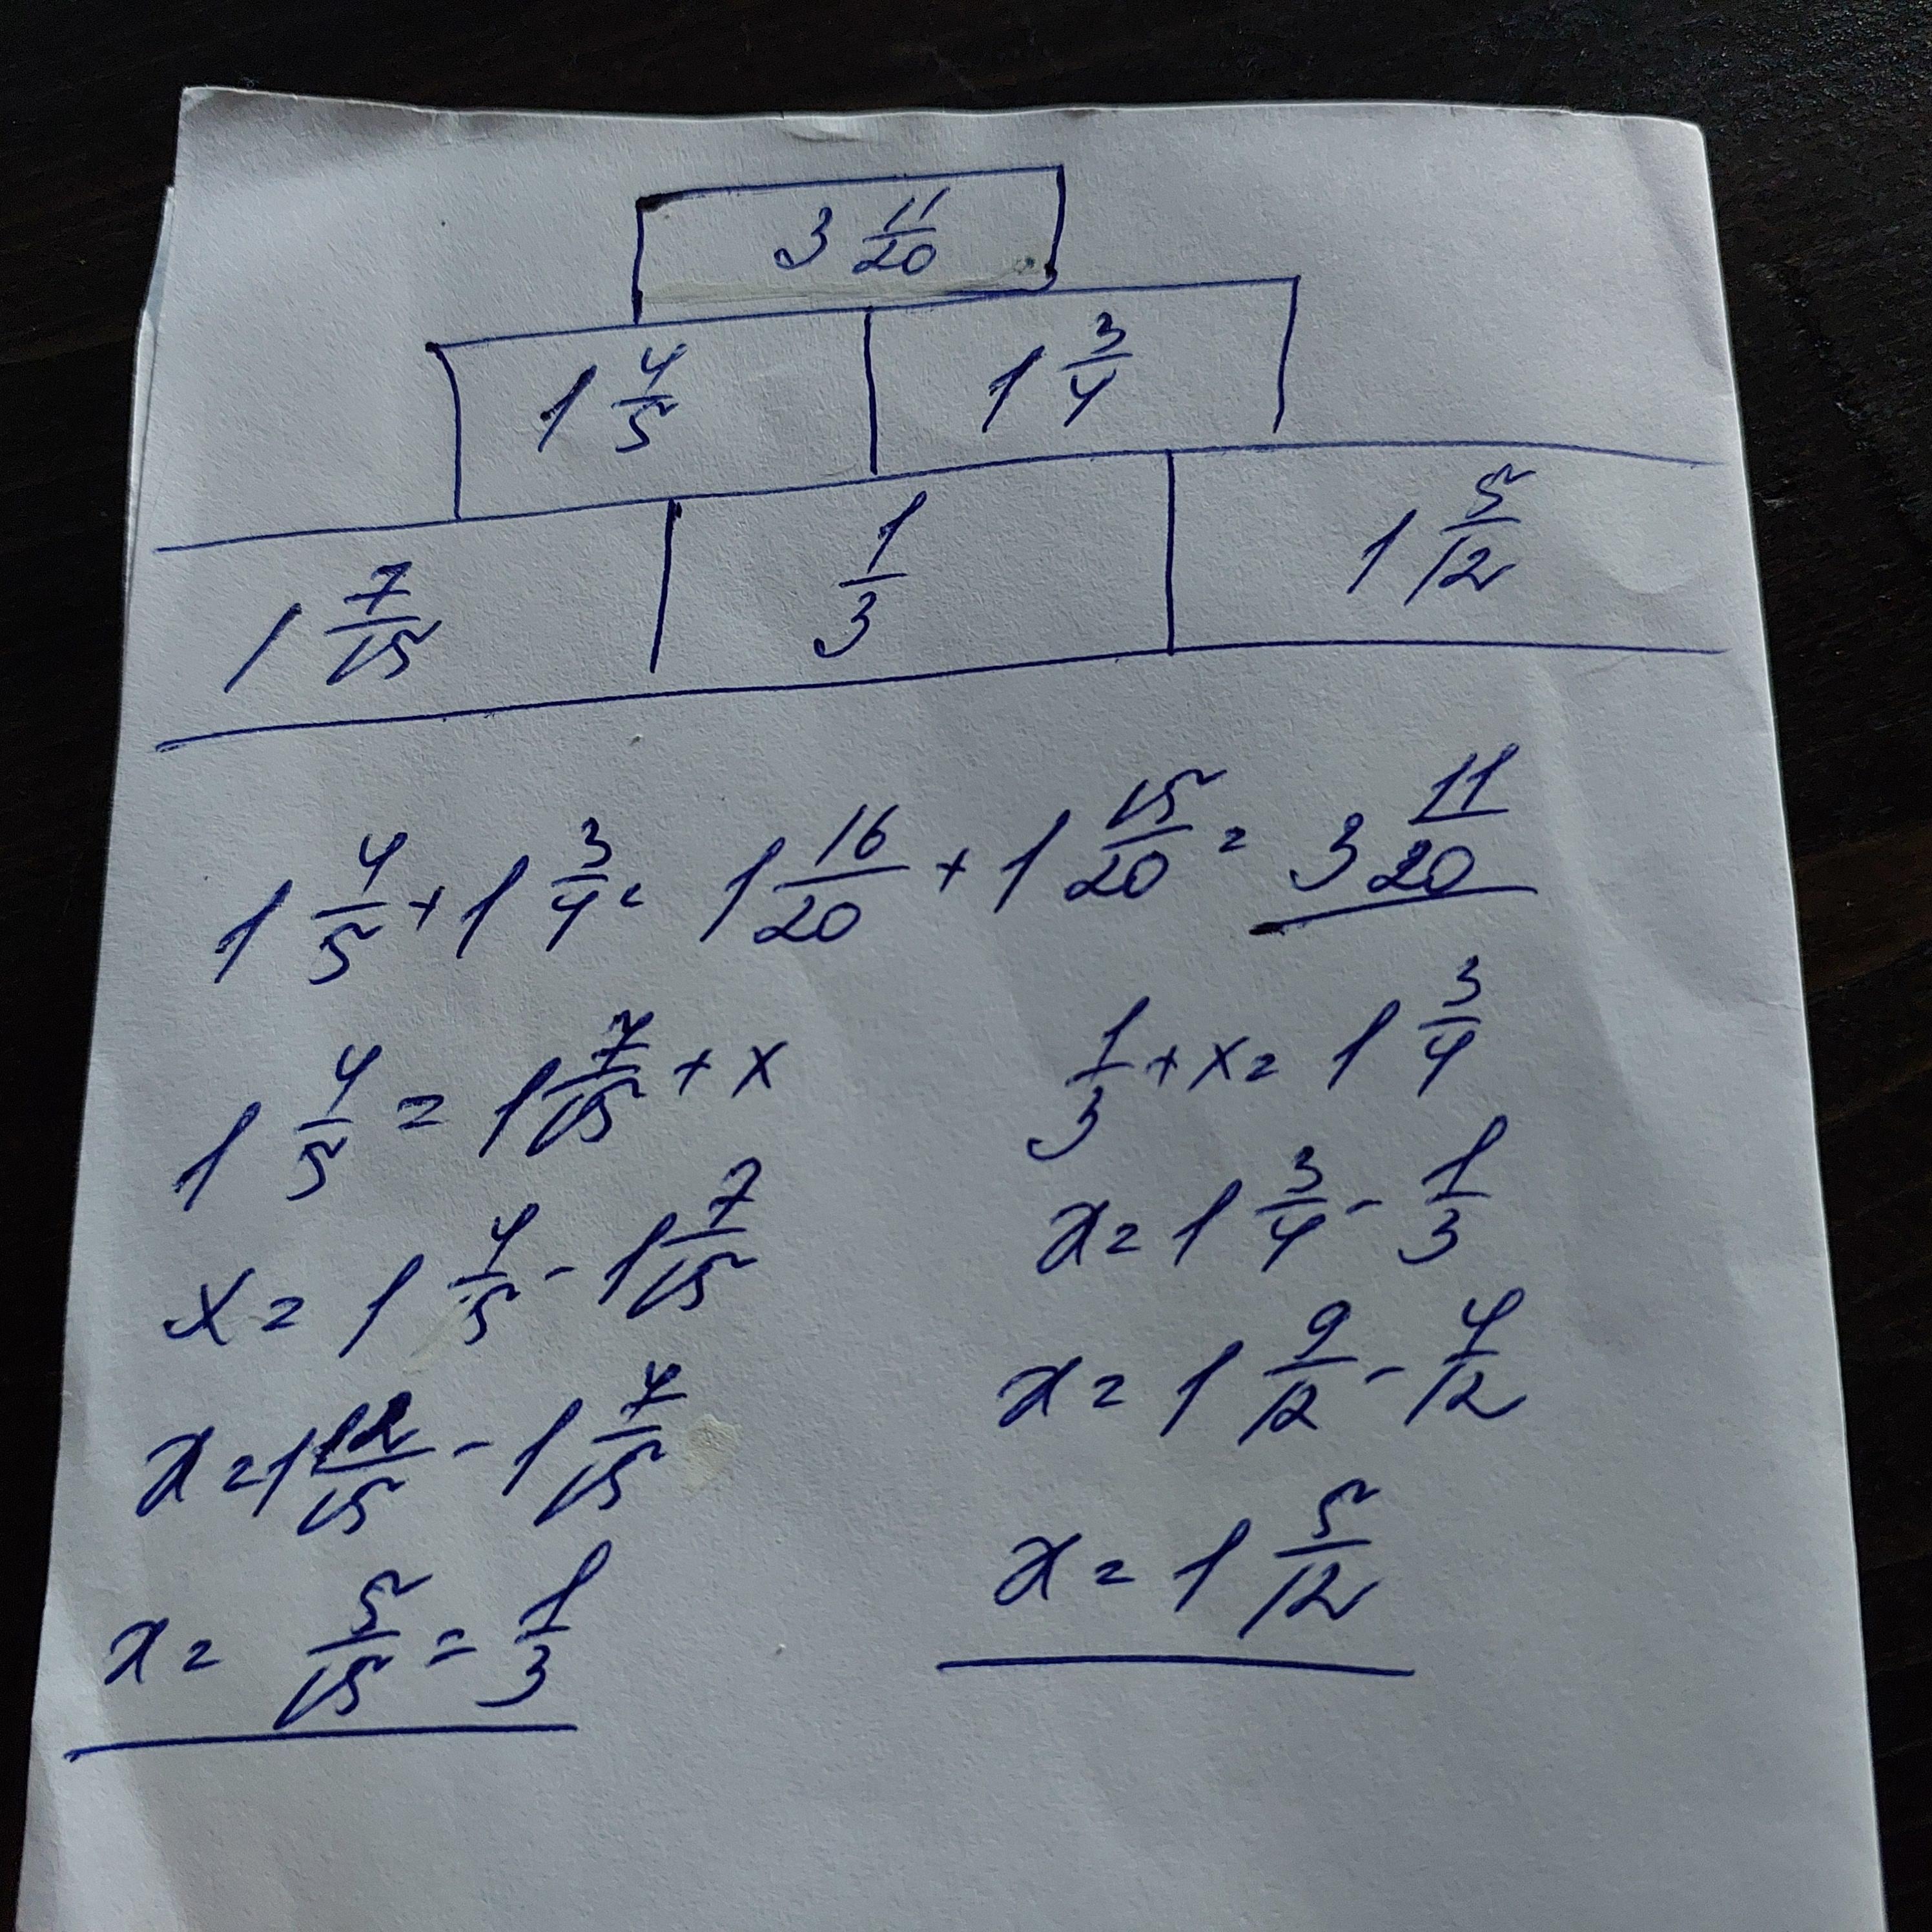 3 11/20
1 4/5 1 3/4
1 7/15 1/3 1 5/12
1 4/5 + 1 3/4 = 1 16/20 + 1 15/20 = 3 11/20
1 4/5 = 1 7/15 + x
x = 1 4/5 - 1 7/15
x = 1 12/15 - 1 7/15
x = 5/15 = 1/3
1/3 + x = 1 3/4
x = 1 3/4 - 1/3
x = 1 9/12 - 4/12
x = 1 5/12